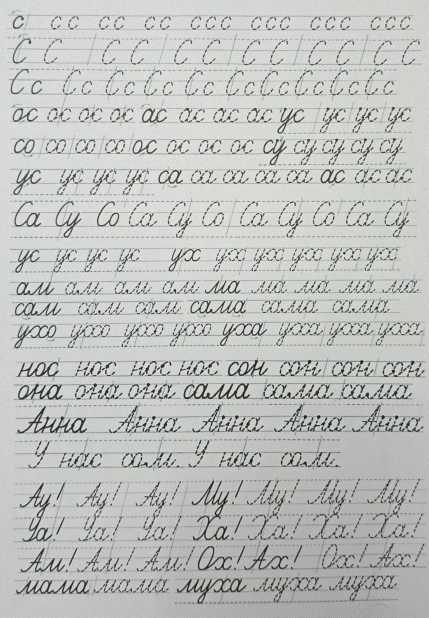 с с с с с с с с с с с с с с
С С С С С С С С С С С С
Сс Сс Сс Сс Сс Сс Сс Сс Сс
ос ос ос ос ас ас ас ас ус ус ус ус
со со со со ос ос ос ос су су су су
ус ус ус ус са са са са са ас ас ас
Са Су Со Са Су Со Са Су Со Са Су
ус ус ус ус ух ух ух ух ух ух
ам ам ам ам ма ма ма ма ма
сам сам сам сама сама сама
ухо ухо ухо ухо уха уха уха уха
нос нос нос нос сон сон сон сон
она она она сама сама сама
Анна Анна Анна Анна Анна
У нас сом. У нас сом.
Ау! Ау! Ау! Му! Му! Му! Му!
Уа! Уа! Уа! Ха! Ха! Ха! Ха!
Ам! Ам! Ам! Ох! Ах! Ох! Ах!
мама мама муха муха муха